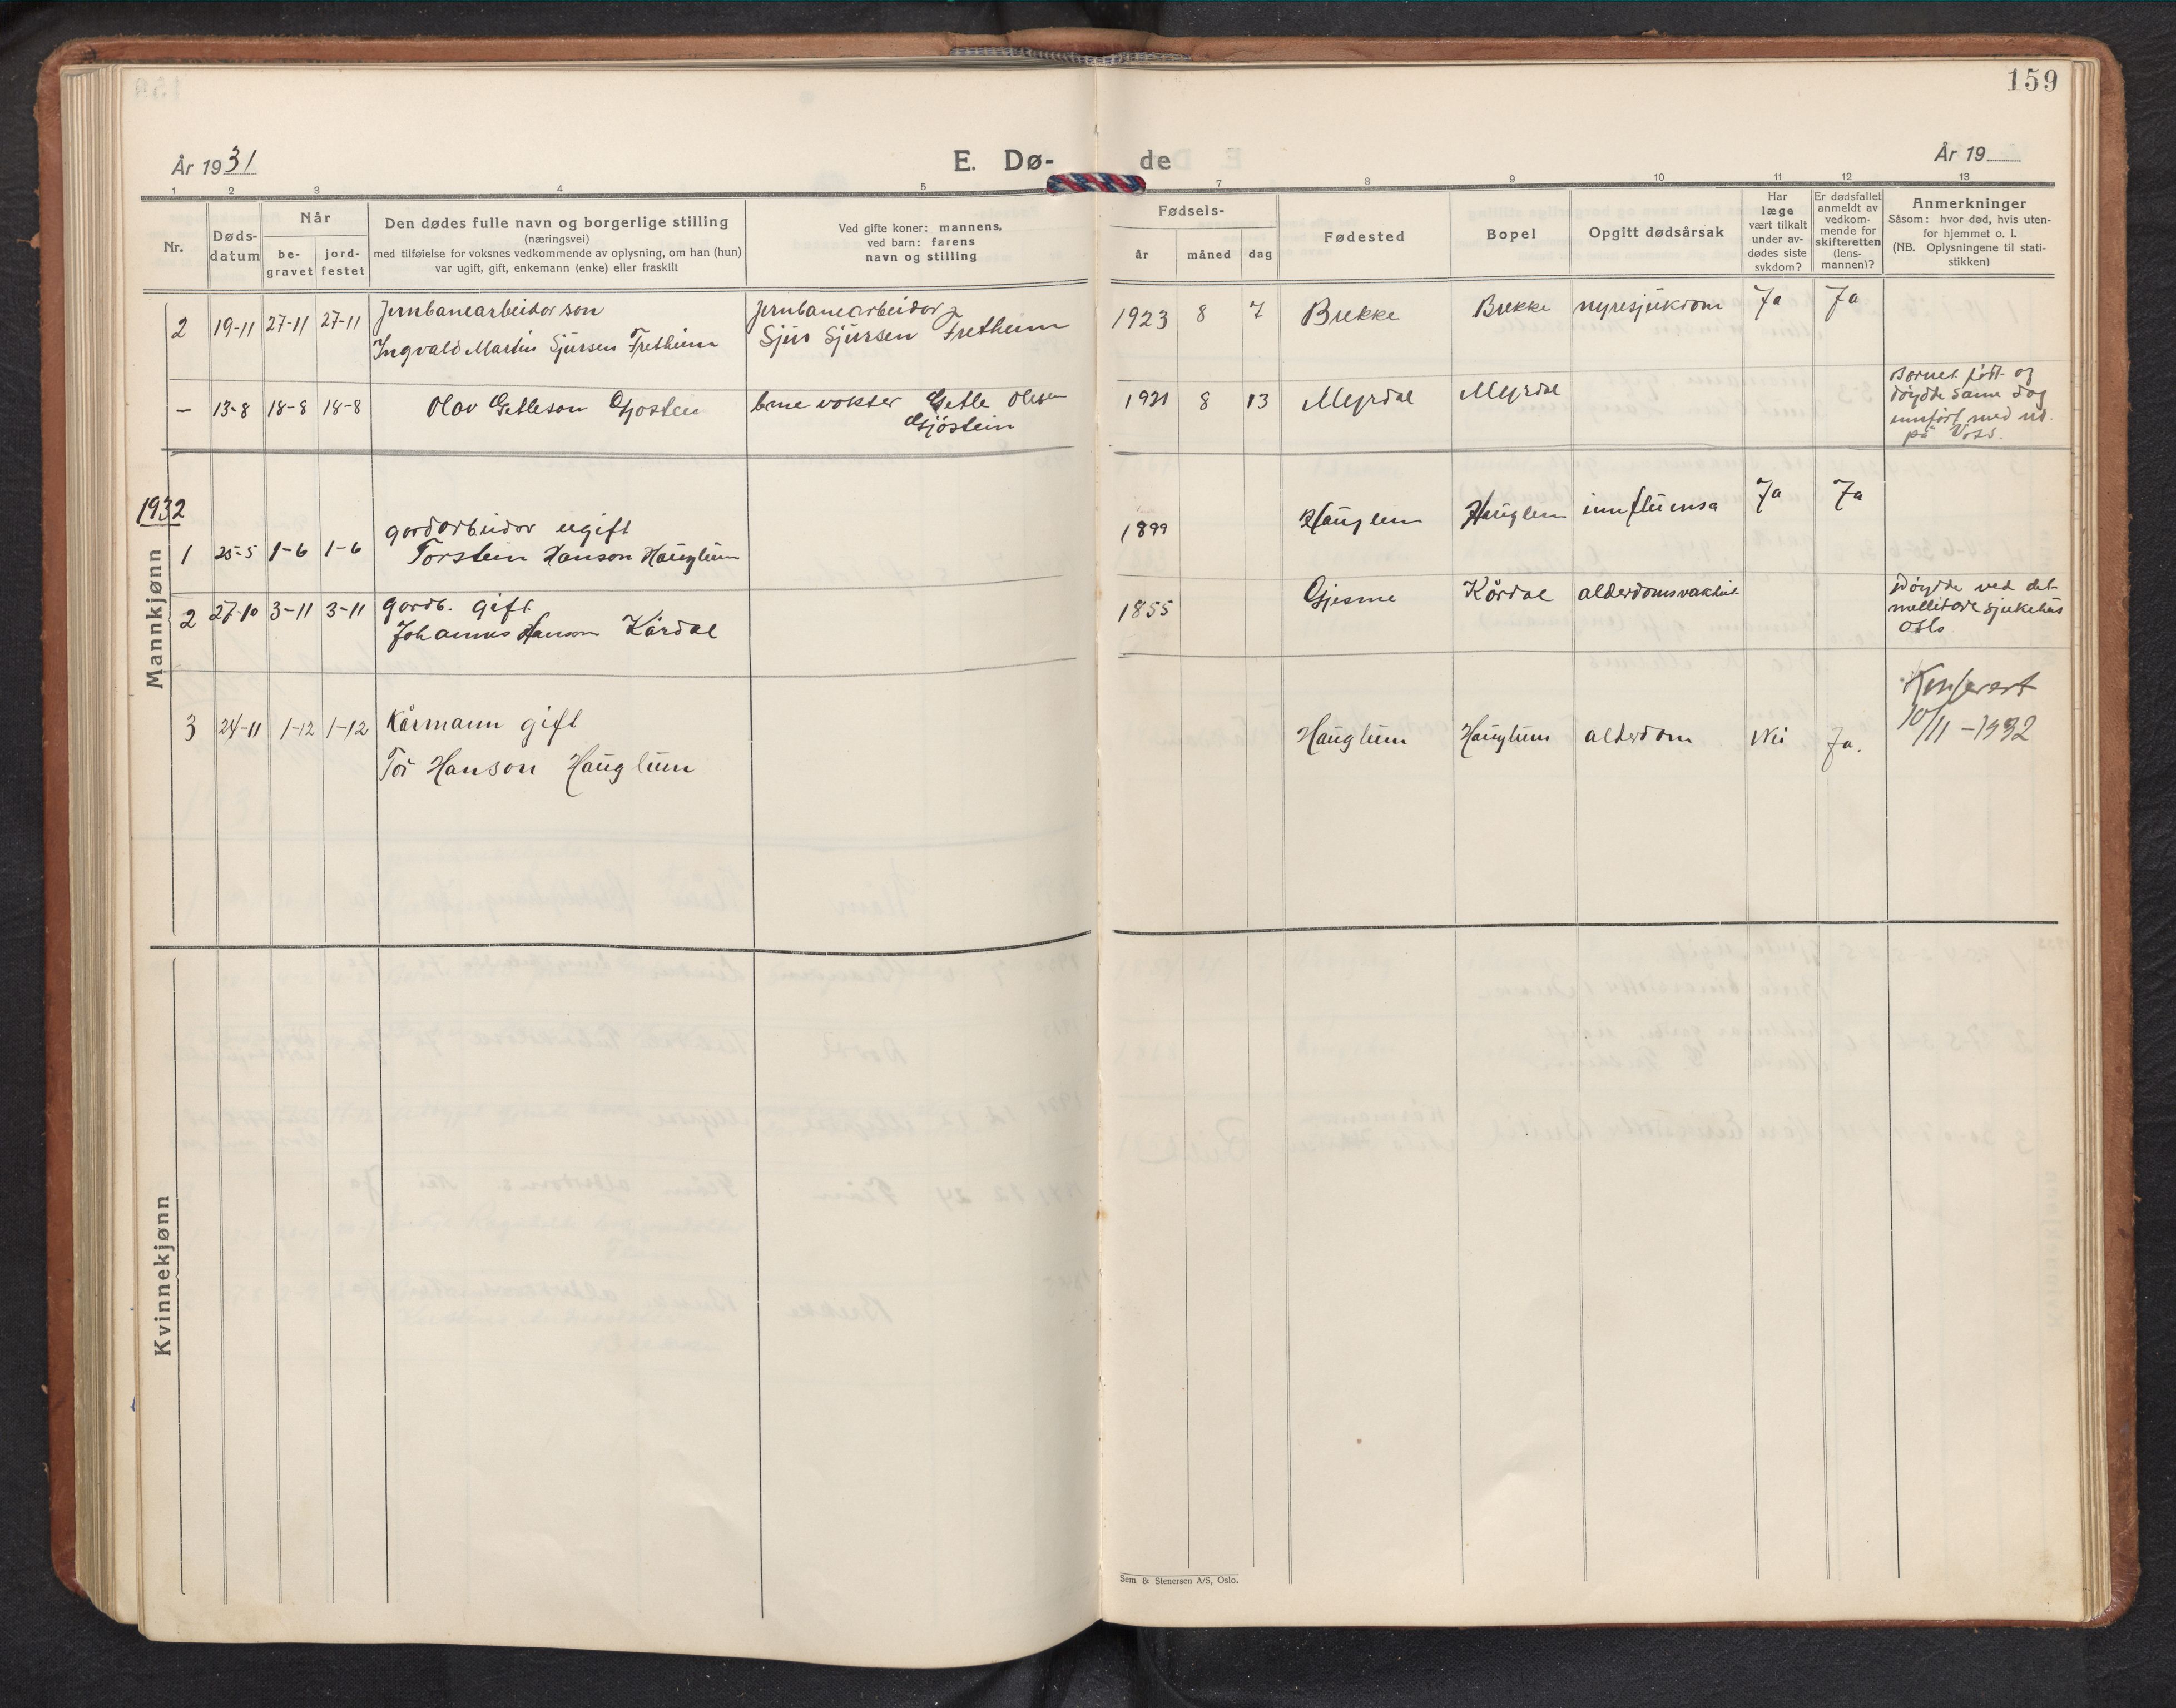 159
År 1931
E. Dø-
de
År 19
1 2 3 4 5 7 8 9 10 11 12 13
Nr.
Døds-
datum
Når
be-
gravet
jord-
festet
Den dødes fulle navn og borgerlige stilling
(næringsvei)
med tilføielse for voksnes vedkommende av oplysning, om han (hun)
var ugift, gift, enkemann (enke) eller fraskilt
Ved gifte koner: mannens,
ved barn: farens
navn og stilling
Fødsels-
år måned dag
Fødested
Bopel
Opgitt dødsårsak
Har
læge
vært tilkalt
under av-
dødes siste
sykdom?
Er dødsfallet
anmeldt av
vedkom-
mende for
skifteretten
(lens-
mannen)?
Anmerkninger
Såsom: hvor død, hvis uten-
for hjemmet o. l.
(NB. Oplysningene til stati-
stikken)
Mannkjønn
2 19-11 27-11 27-11 Jernbanearbeidar son
Ingvald Martin Sjursen Fretheim
Jernbanearbeidar
Sjur Sjursen Fretheim
1923 8 7 Brekke Brekke nyresjukdom Ja Ja
- 13-8 18-8 18-8 Olav Getleson Gjostein
vokter Getle Olesen
Gjöstein
1931 8 13 Myrdal Myrdal
Barnet födt og
döydde same dag
innfört med nr.
på Voss.
1932
1 25-5 1-6 1-6 gardarbeidar ugift
Torstein Hanson Hauglum
1899 Hauglum Hauglum innfluensa Ja Ja
2 27-10 3-11 3-11 gardb. gift
Johannes Hanson Kårdal
1855 Gjesme Kårdal alderdomsvakheit
Döydde ved det
militære sjukehus
Oslo
3 24-11 1-12 1-12 Kårmann gift
Tor Hanson Hauglum
Hauglum Hauglum alderdom Nei Ja.
Konferert
10/11-1932
Kvinnekjønn
Sem & Stenersen A/S, Oslo.